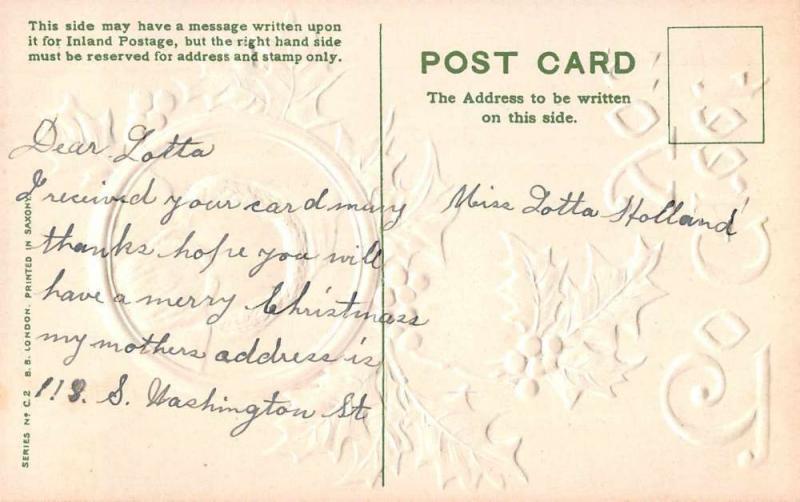 This side may have a message written upon
it for Inland Postage, but the right hand side
must be reserved for address and stamp only.
POST CARD
The Address to be written
on this side.
Dear Lotta
I received your card many
thanks hope you will
have a merry Christmass
my mothers address is
118. S. Washington St
Miss Lotta Holland
SERIES Nº C.2 B.B. LONDON. PRINTED IN SAXONY.